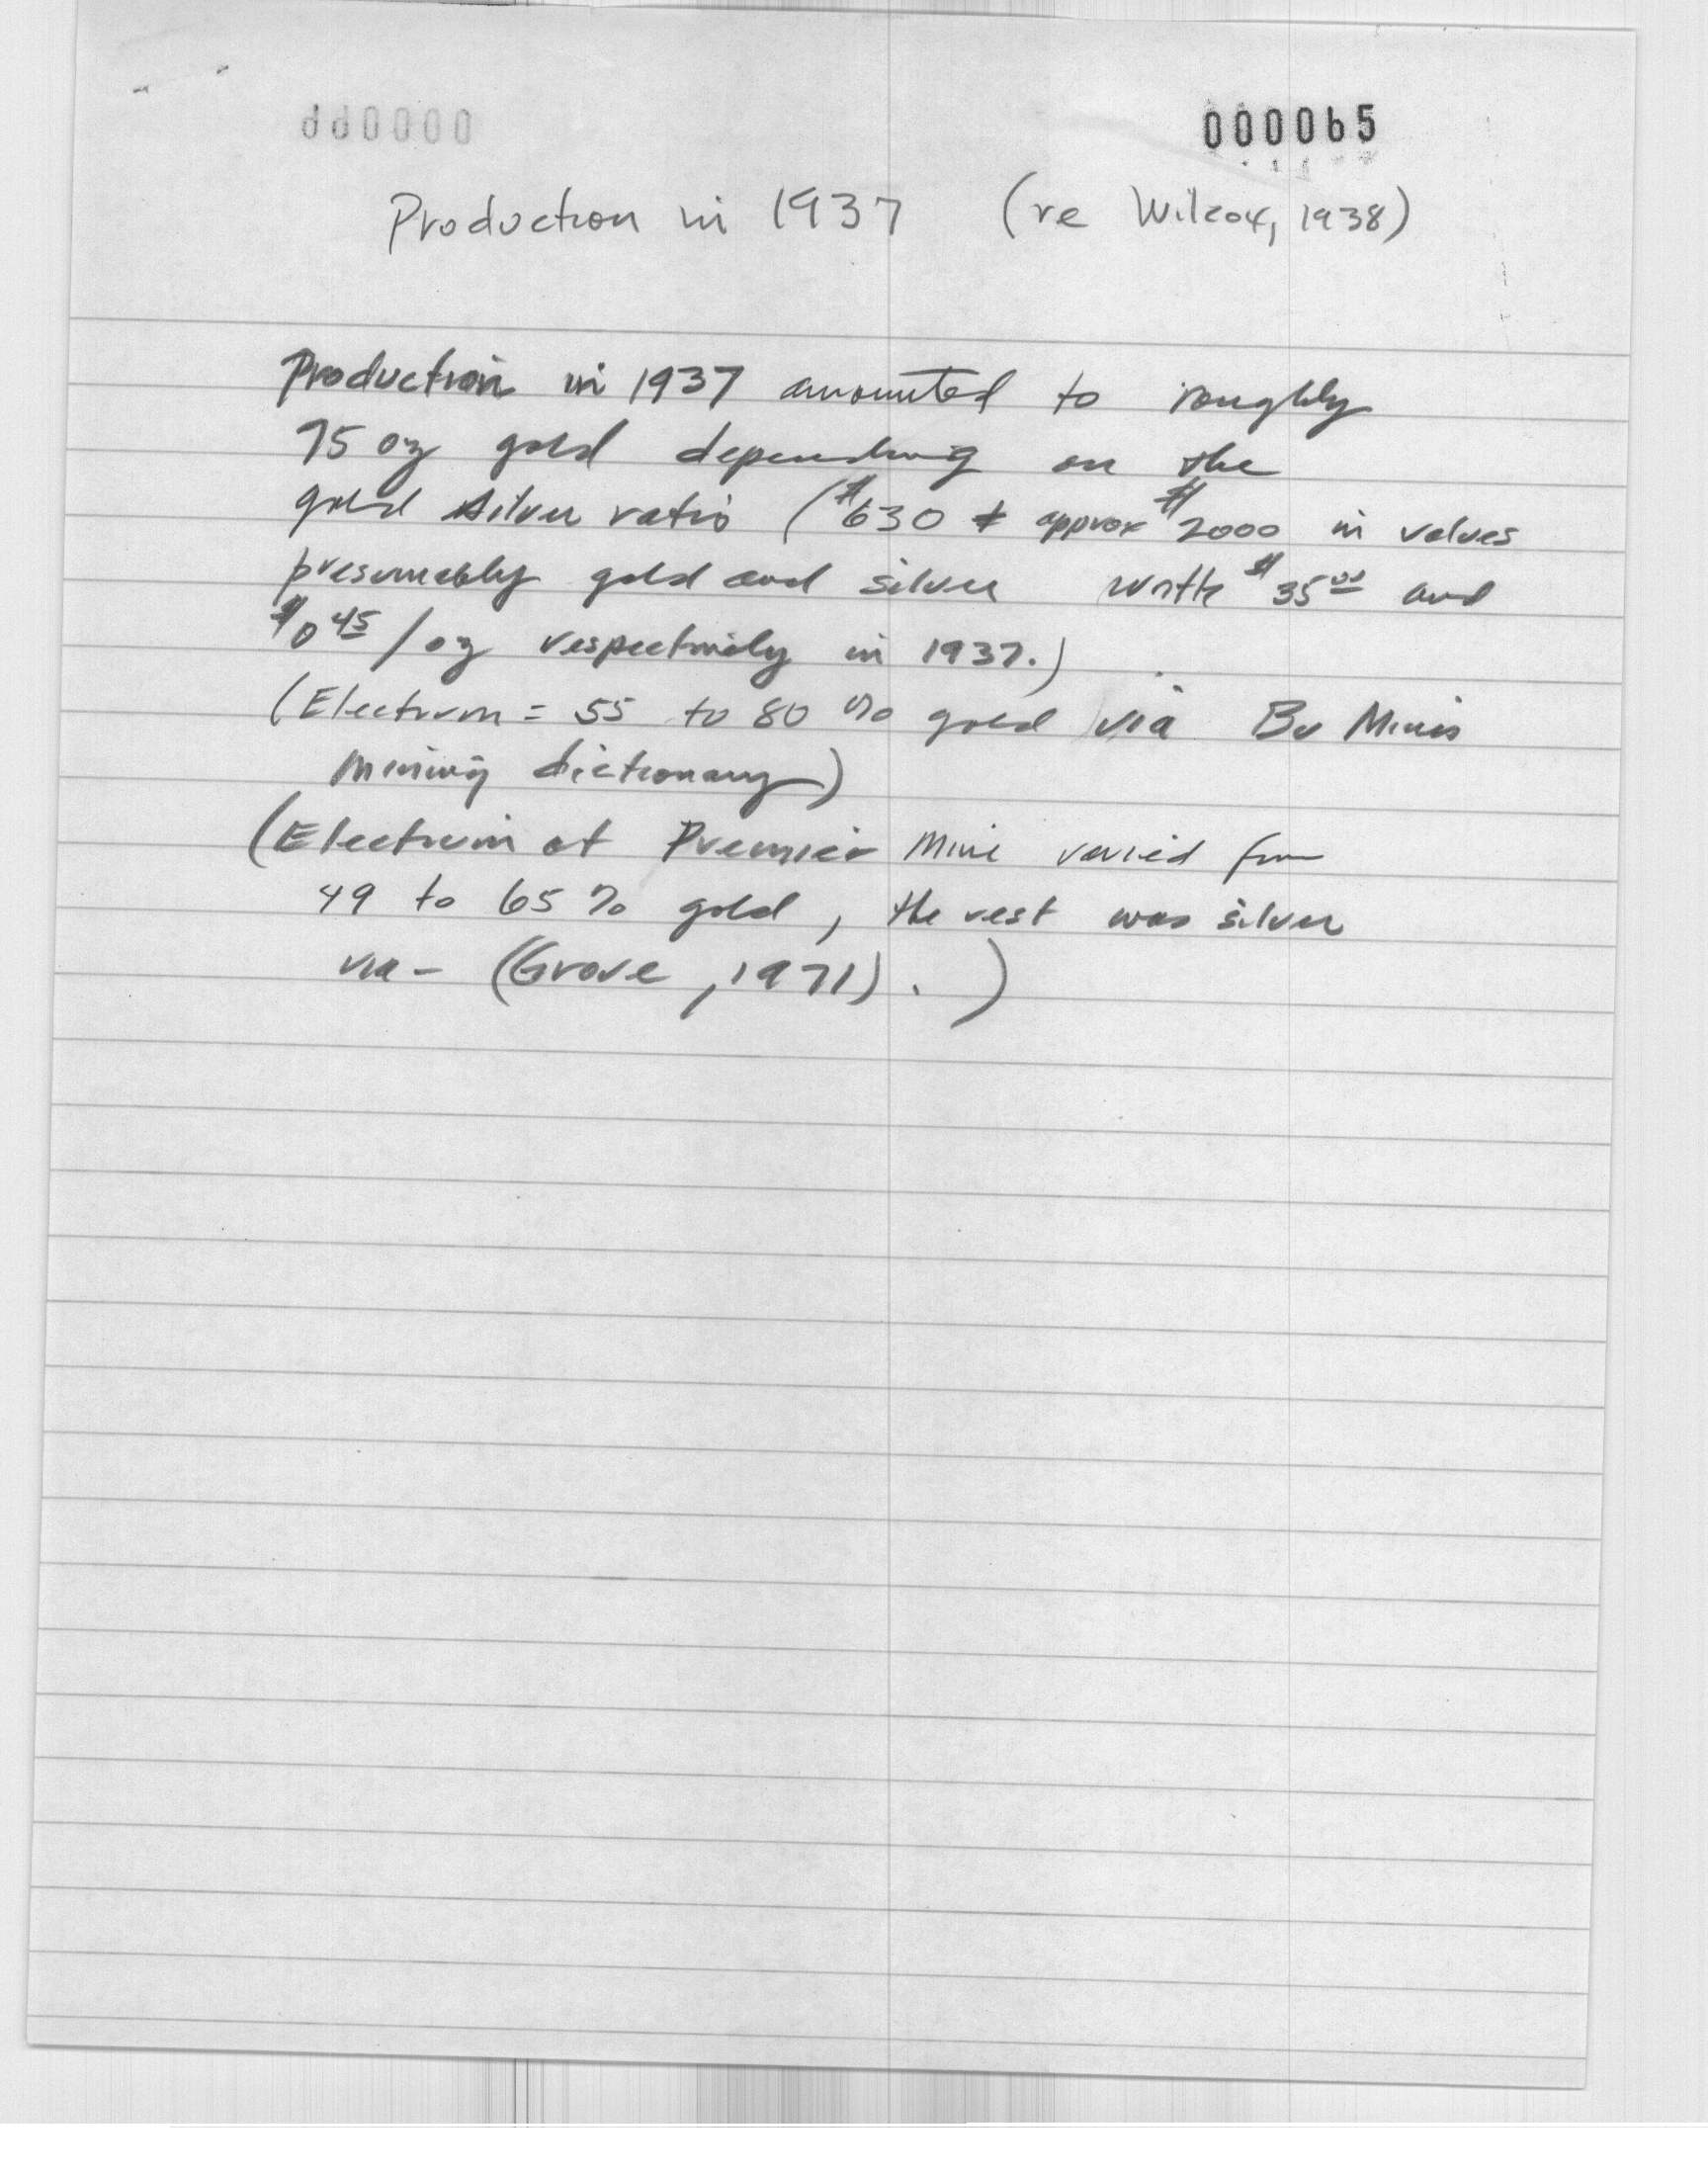 000065
Production in 1937 (re Wilcox, 1938)
Production in 1937 amounted to roughly
75 oz gold depending on the
gold silver ratio ($630 + approx $2000 in values
presumably gold and silver worth $35.00 and
$0.45 / oz respectively in 1937.)
(Electrum = 55 to 80 % gold via Bu Mines
Mining dictionary)
(Electrum at Premier Mine varied from
49 to 65 % gold, the rest was silver
via - (Grove, 1971). )